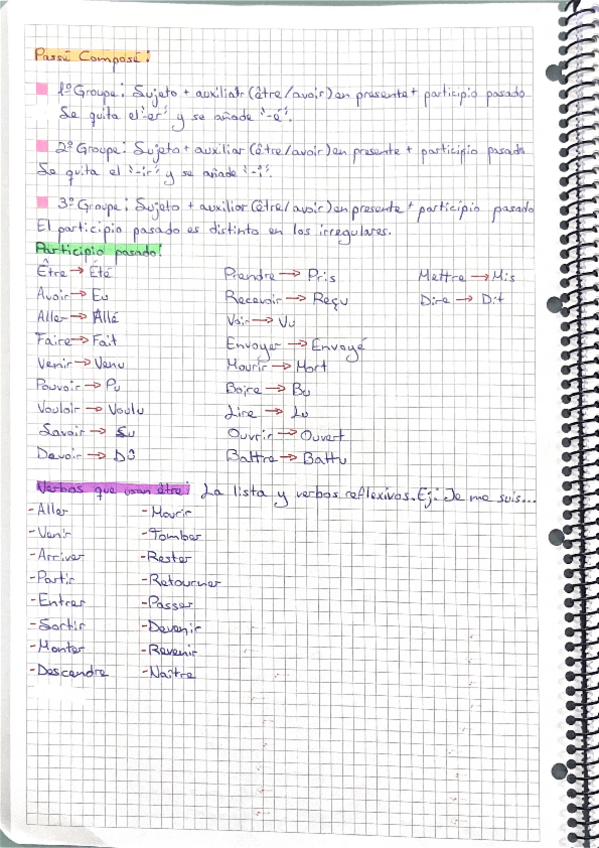 Passé Composé:
1º Groupe: Sujeto + auxiliar (être/avoir) en presente + participio pasado
Se quita el "-er" y se añade "-é".
2º Groupe: Sujeto + auxiliar (être/avoir) en presente + participio pasado
Se quita el "-ir" y se añade "-i".
3º Groupe: Sujeto + auxiliar (être/avoir) en presente + participio pasado
El participio pasado es distinto en los irregulares.
Participio pasado:
Être → Été
Avoir → Eu
Aller → Allé
Faire → Fait
Venir → Venu
Pouvoir → Pu
Vouloir → Voulu
Savoir → Su
Devoir → Dû
Prendre → Pris
Recevoir → Reçu
Voir → Vu
Envoyer → Envoyé
Mourir → Mort
Boire → Bu
Lire → Lu
Ouvrir → Ouvert
Battre → Battu
Mettre → Mis
Dire → Dit
Verbos que usan être: La lista y verbos reflexivos. Ej: Je me suis...
- Aller
- Venir
- Arriver
- Partir
- Entrer
- Sortir
- Monter
- Descendre
- Mourir
- Tomber
- Rester
- Retourner
- Passer
- Devenir
- Revenir
- Naître